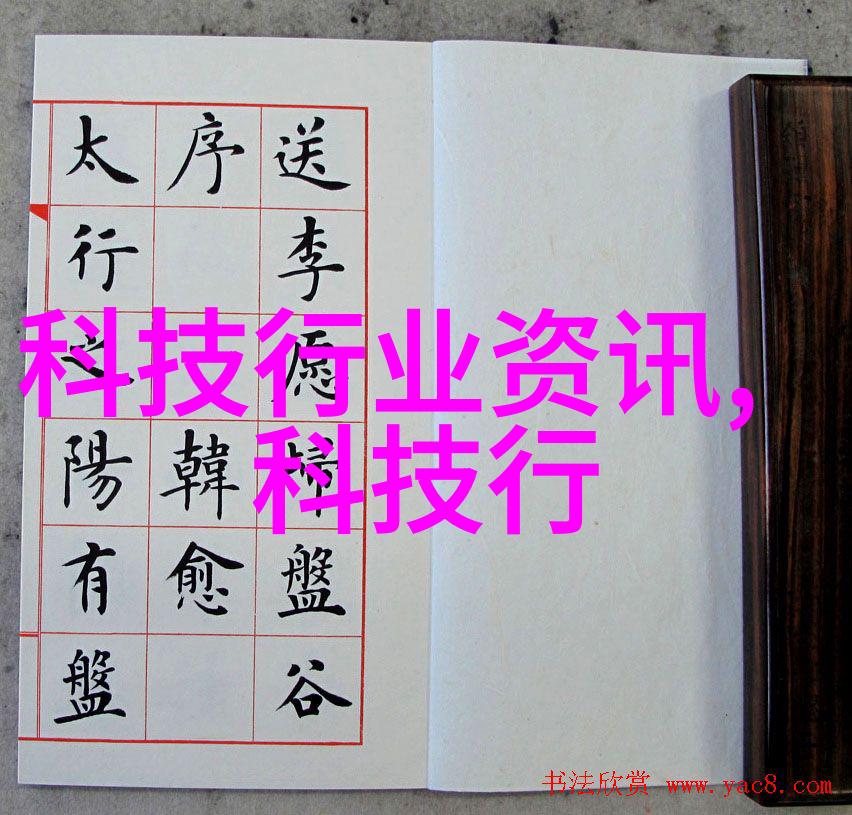 送李愿歸盤谷
序 韓愈
太行之陽有盤
科技行业资讯,
科技行
书法欣赏 www.yac8.com